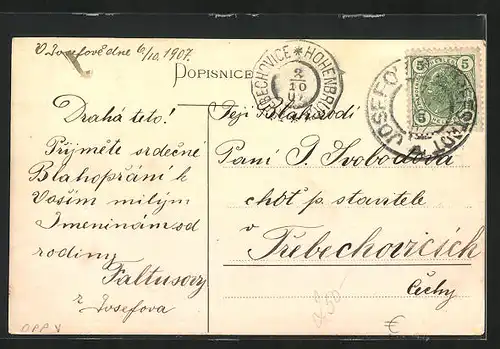 V Josefově dne 6/10. 1907.
POPISNICE
TŘEBECHOVICE * HOHENBRUCK
8
10
5 5
5 5
JOSEFOV JOSEFSTADT
Drahá teto!
Přijměte srdečné
Blahopřání k
Vaším milým
Jmeninám od
rodiny
Faltusovy
z Josefova
Její Blahorodí
Paní J. Svobodová
choť p. stavitele
v
Třebechovicích
Čechy
DPP V
€